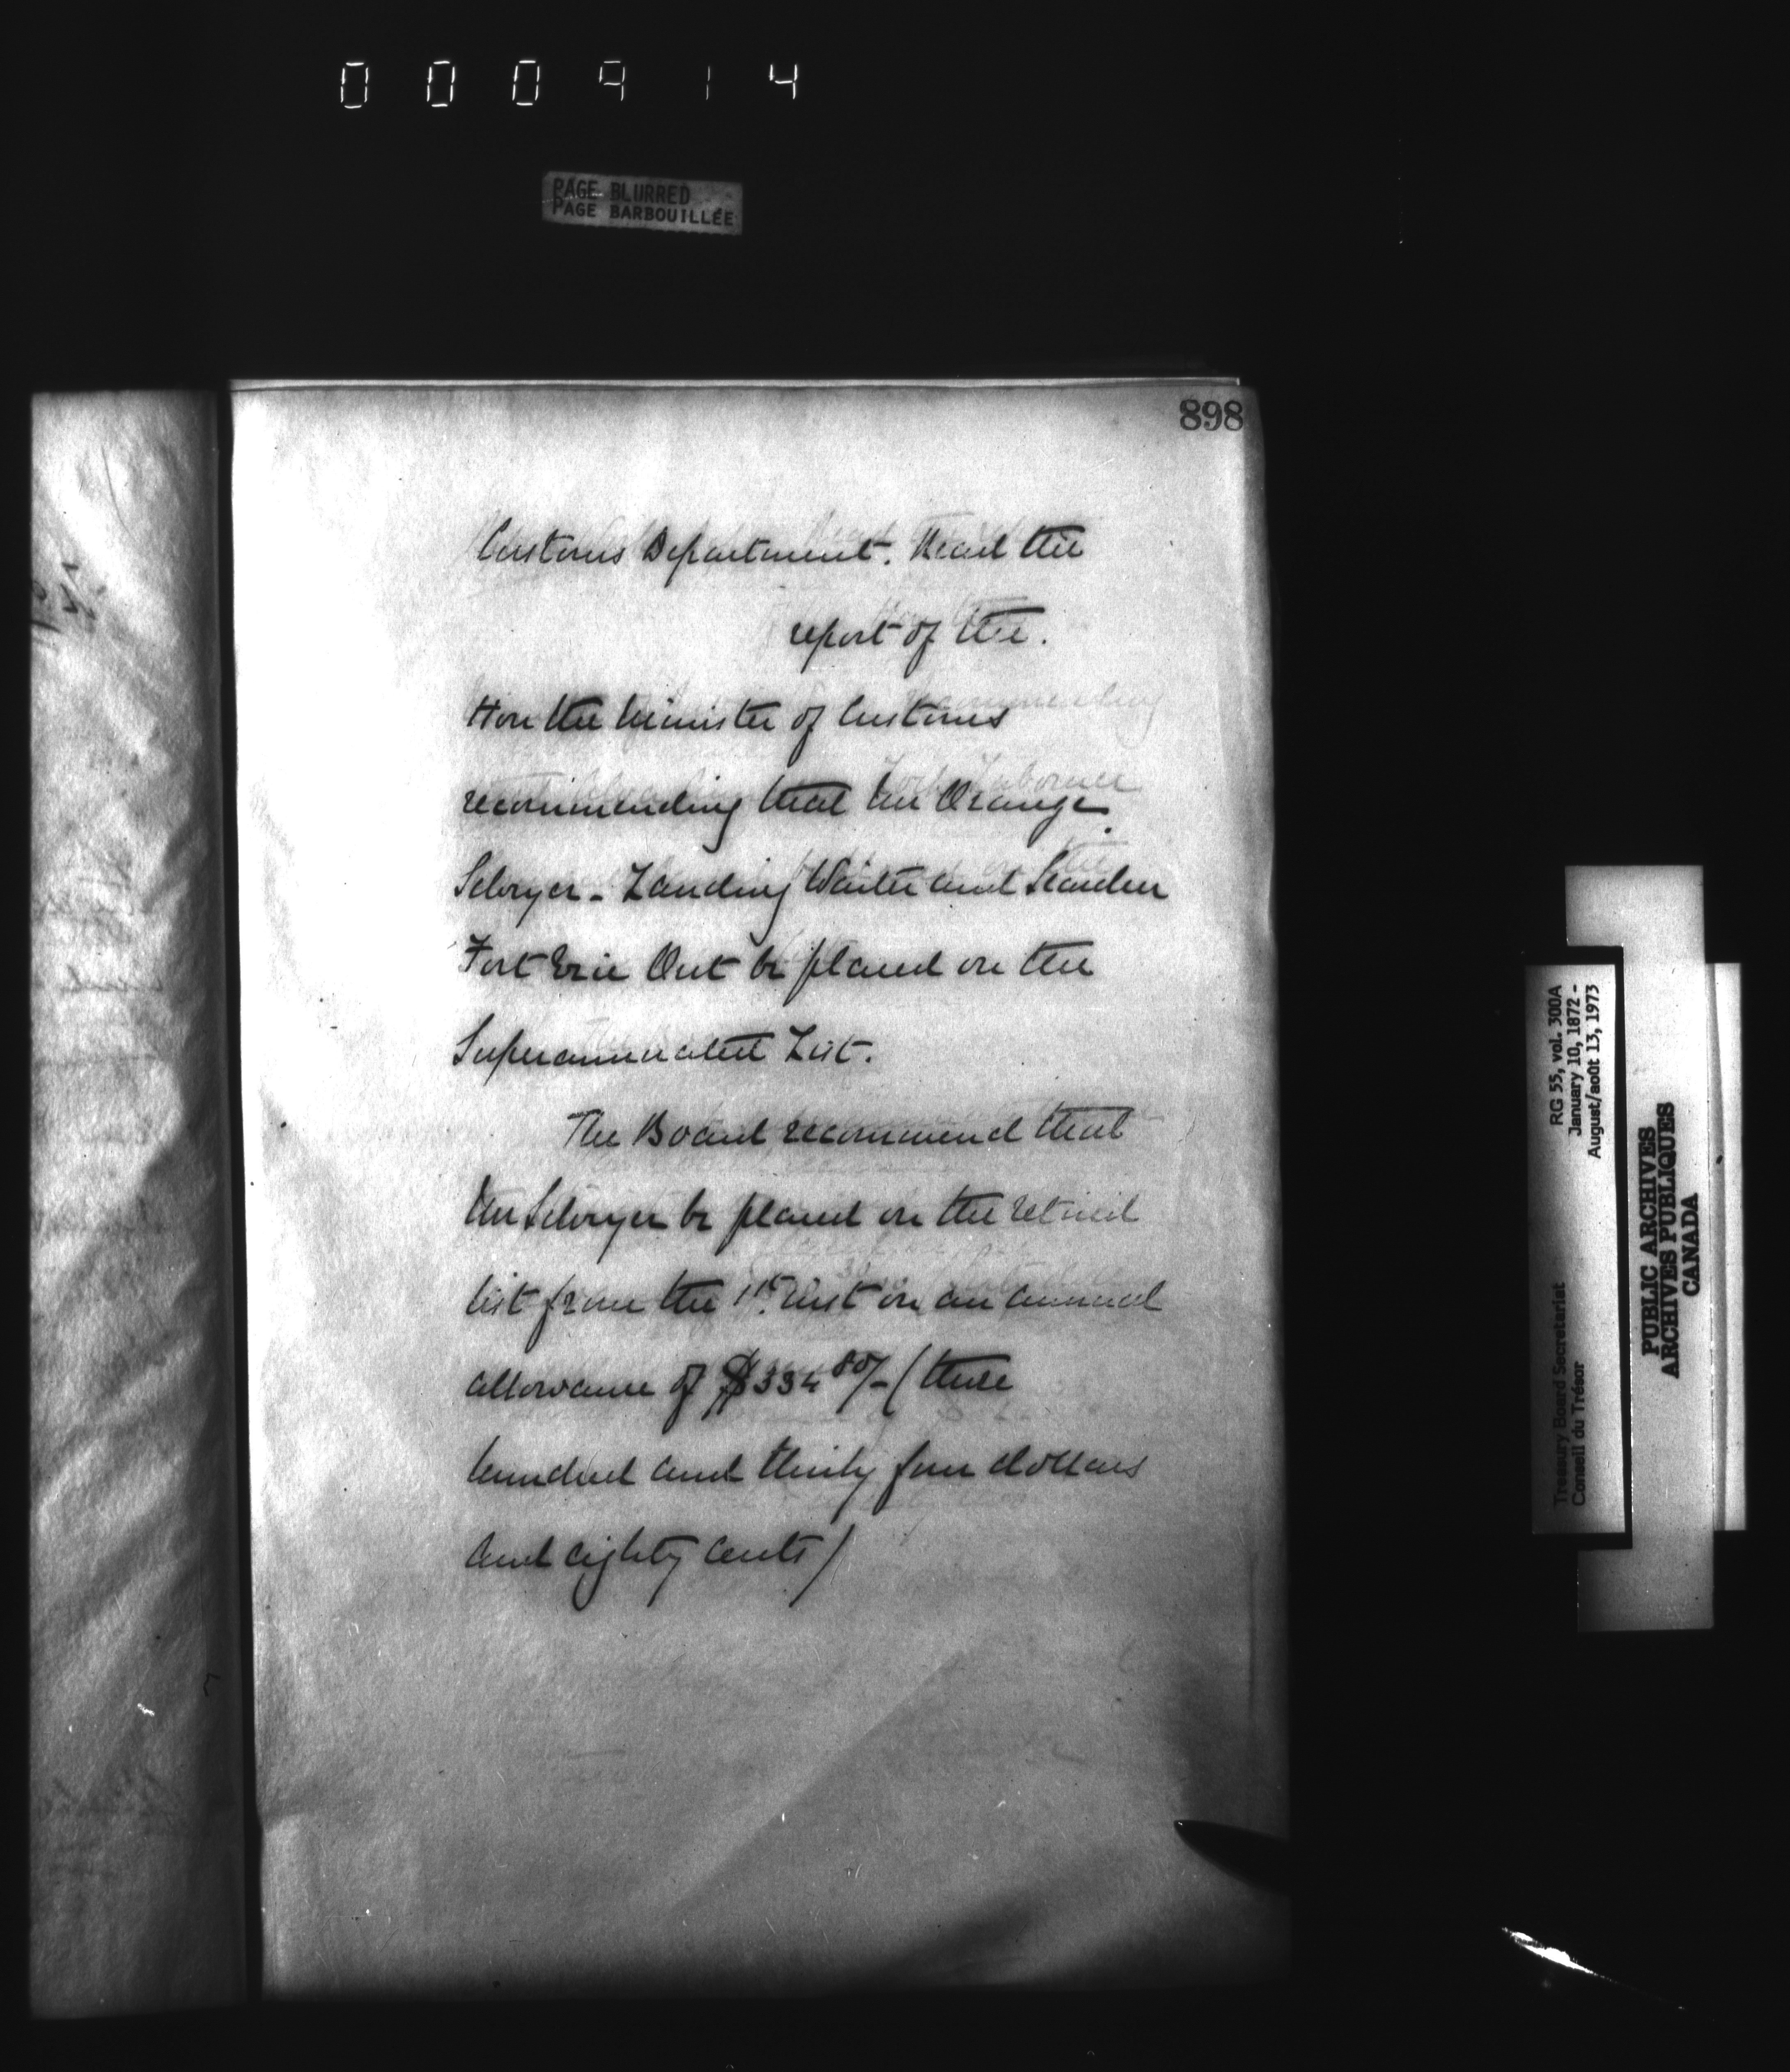 000914
PAGE BLURRED
PAGE BARBOUILLÉE
898
Customs Department. Read the
report of the.
Hon the Minister of Customs
recommending that Mr Orange
Schryer - Landing Waiter and Searcher
Fort Erie Ont be placed on the
Superannuated List.
The Board recommend that
Mr Schryer be placed on the retired
list from the 1st. Inst on an annual
allowance of $334 80/- (three
hundred and thirty four dollars
and eighty cents)
RG 55, vol. 300A
January 10, 1872 -
August/août 13, 1973
Treasury Board Secretariat
Conseil du Trésor
PUBLIC ARCHIVES
ARCHIVES PUBLIQUES
CANADA